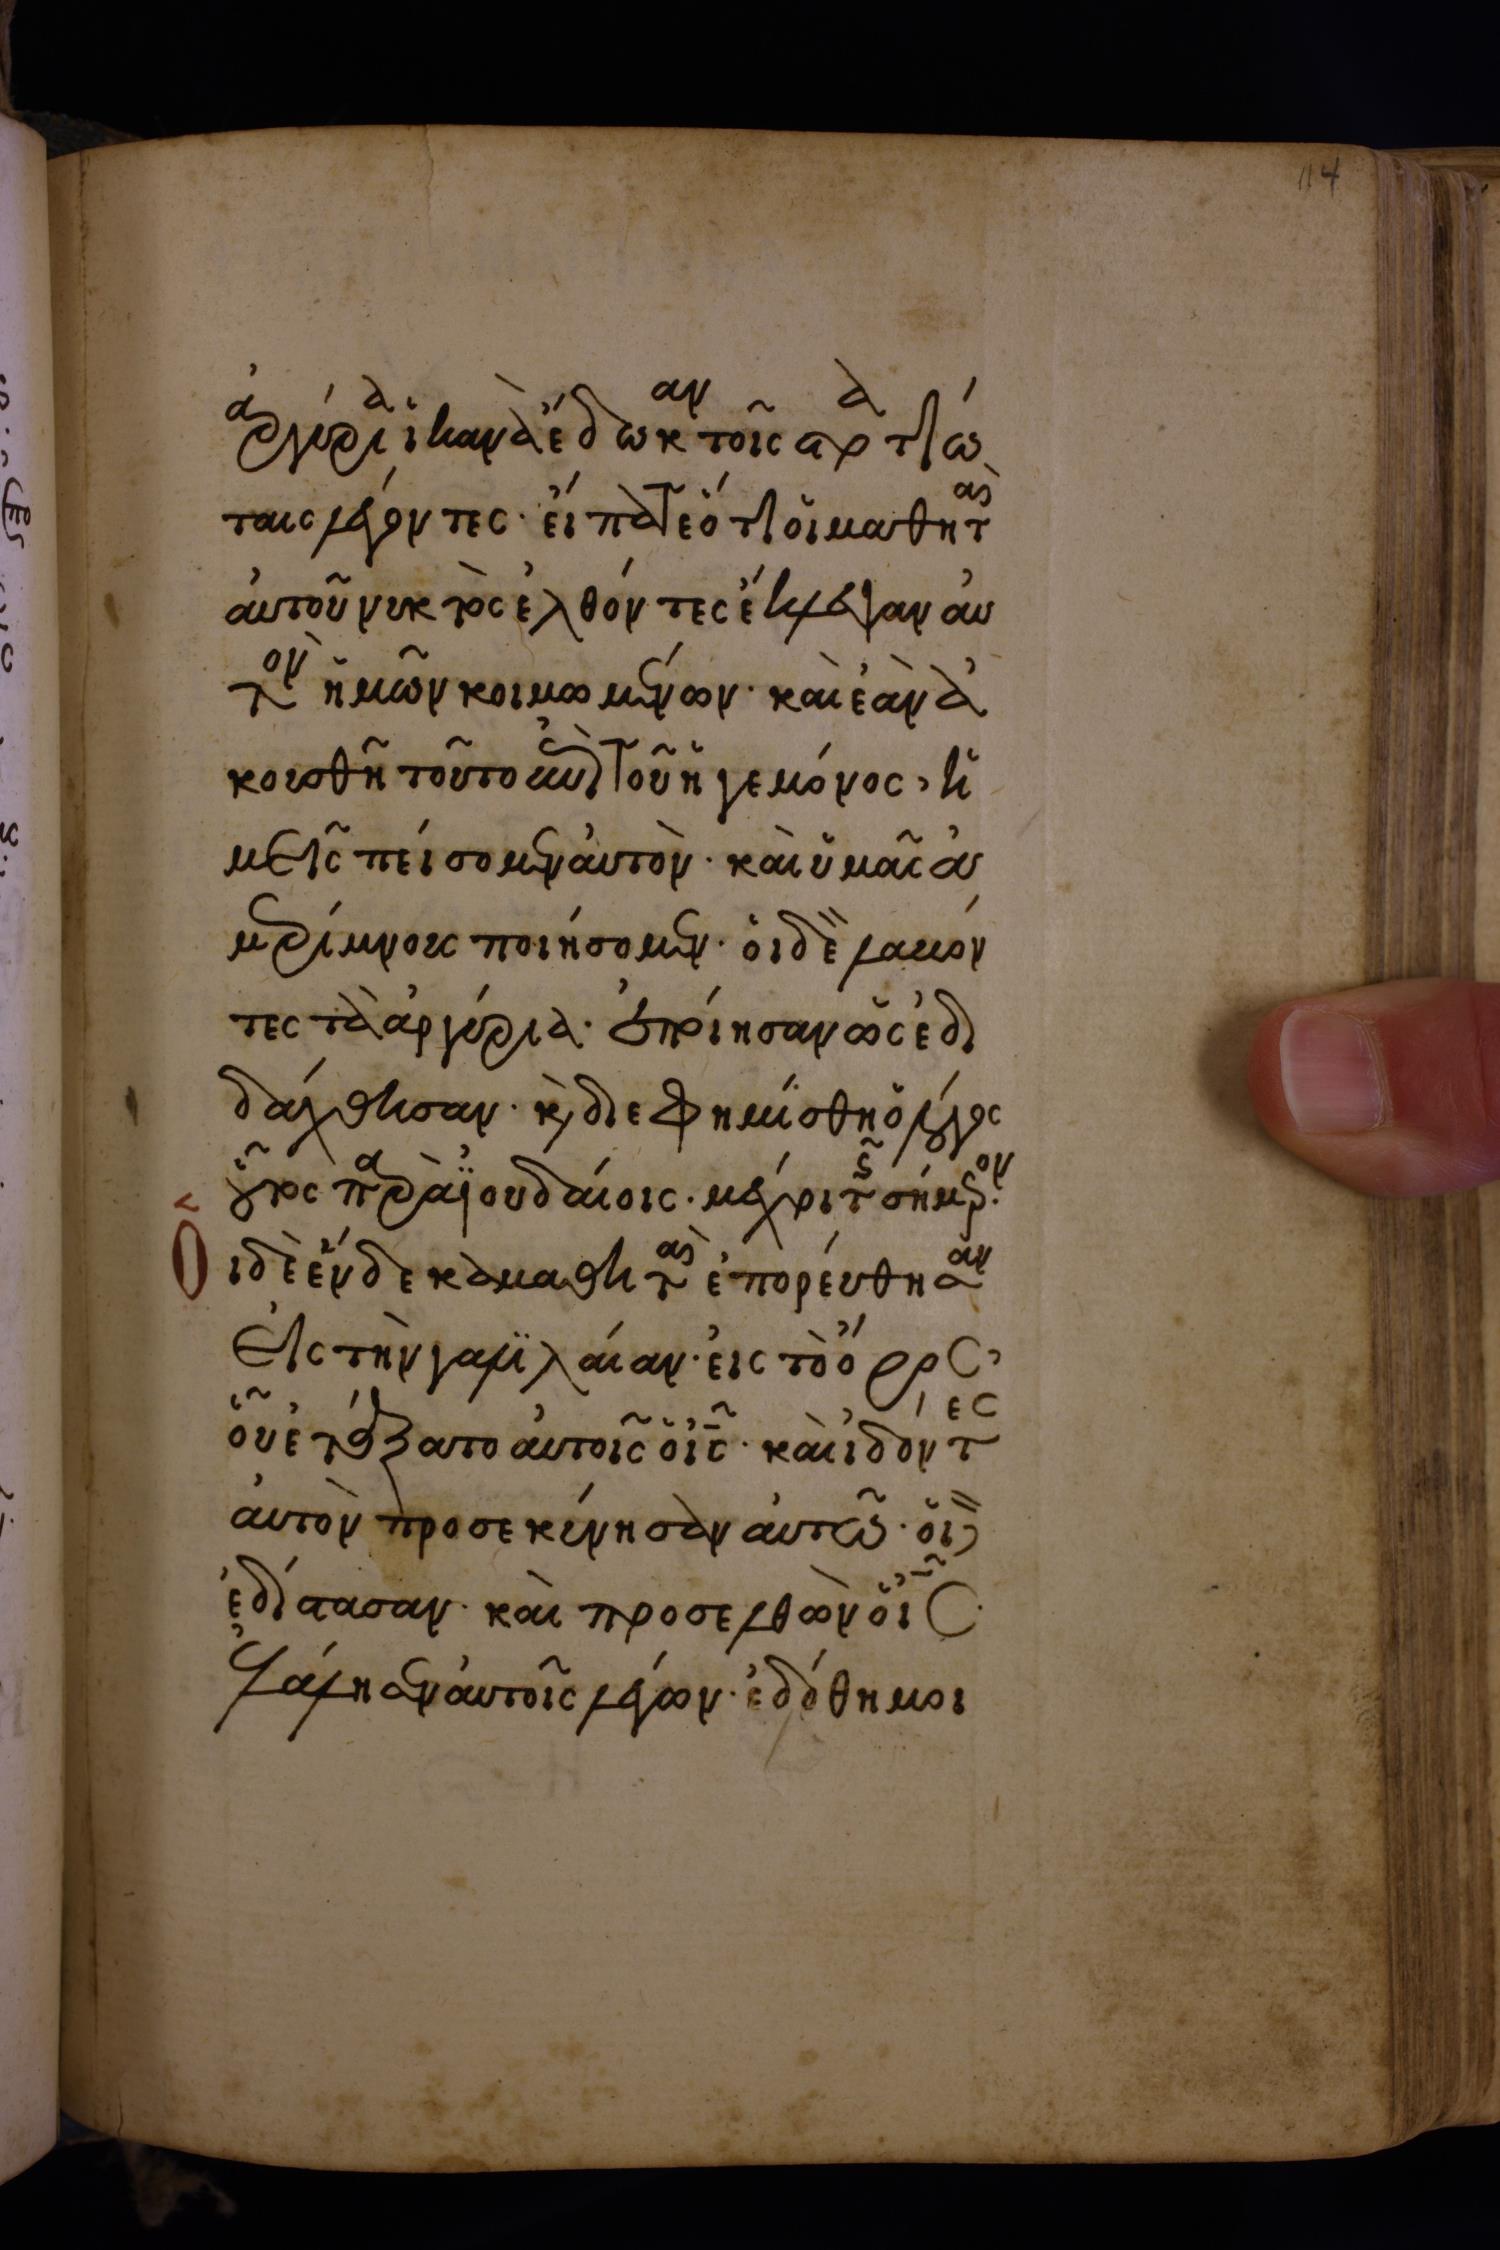 114
ἀργύρια ἱκανὰ ἔδωκαν τοῖς στρατιώ
ταις λέγοντες· εἴπατε ὅτι οἱ μαθηταὶ
αὐτοῦ νυκτὸς ἐλθόντες ἔκλεψαν αὐ
τὸν ἡμῶν κοιμωμένων· καὶ ἐὰν ἀ
κουσθῆ τοῦτο ἐπὶ τοῦ ἡγεμόνος, ἡ
μεῖς πείσομεν αὐτὸν· καὶ ὑμᾶς ἀ
μερίμνους ποιήσομεν· οἱ δὲ λαβόν
τες τὰ ἀργύρια· ἐποίησαν ὡς ἐδι
δάχθησαν· κ̀ διεφημίσθη ὁ λόγος
οὗτος παρὰ ἰουδαίοις· μέχρι τῆς σήμερον·
Οἱ δὲ ἕνδεκα μαθηταὶ ἐπορεύθησαν
εἰς τὴν γαλιλαίαν· εἰς τὸ ὄρος,
οὗ ἐτάξατο αὐτοῖς ὁ ις̅· καὶ ἰδόντες
αὐτὸν προσεκύνησαν αὐτῶ· οἱ δὲ
ἐδίστασαν· καὶ προσελθὼν ὁ ις̅·
ἐλάλησεν αὐτοῖς λέγων· ἐδόθη μοι